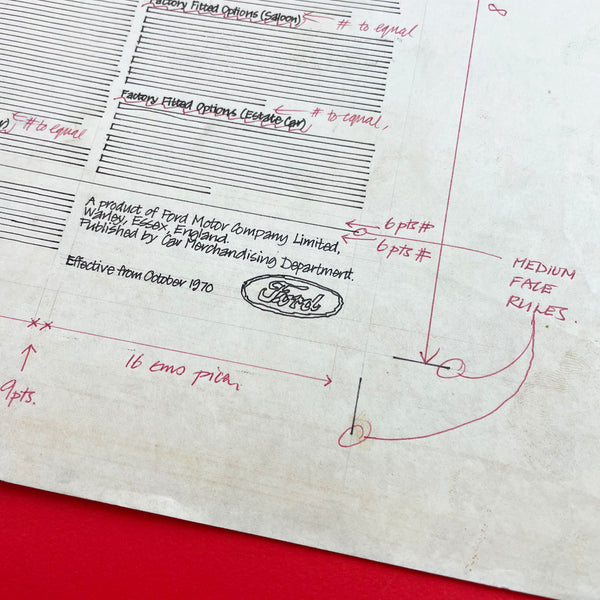 Factory Fitted Options (Saloon)
# to equal
8
Factory Fitted Options (Estate Car)
# to equal,
# to equal
A product of Ford Motor Company Limited,
Warley, Essex, England.
Published by Car Merchandising Department.
6 pts #
6 pts #
Effective from October 1970
Ford
MEDIUM
FACE
RULES.
16 ems pica,
9pts.